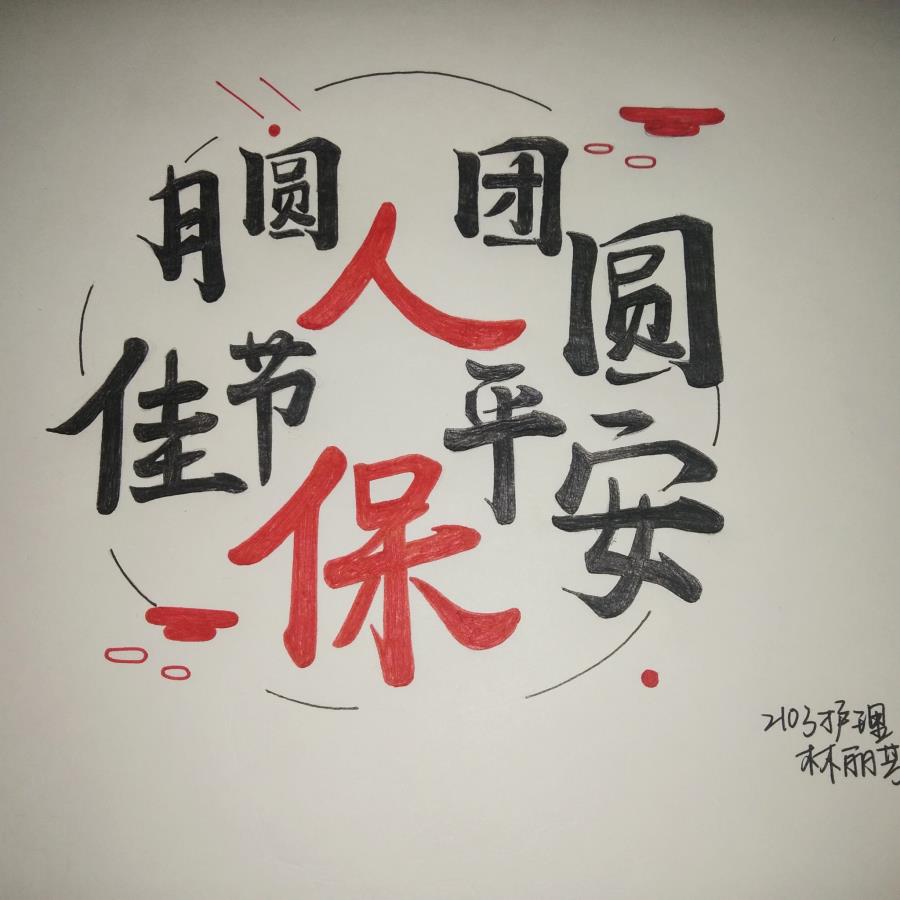 月圆人团圆
佳节保平安
2103护理
林丽